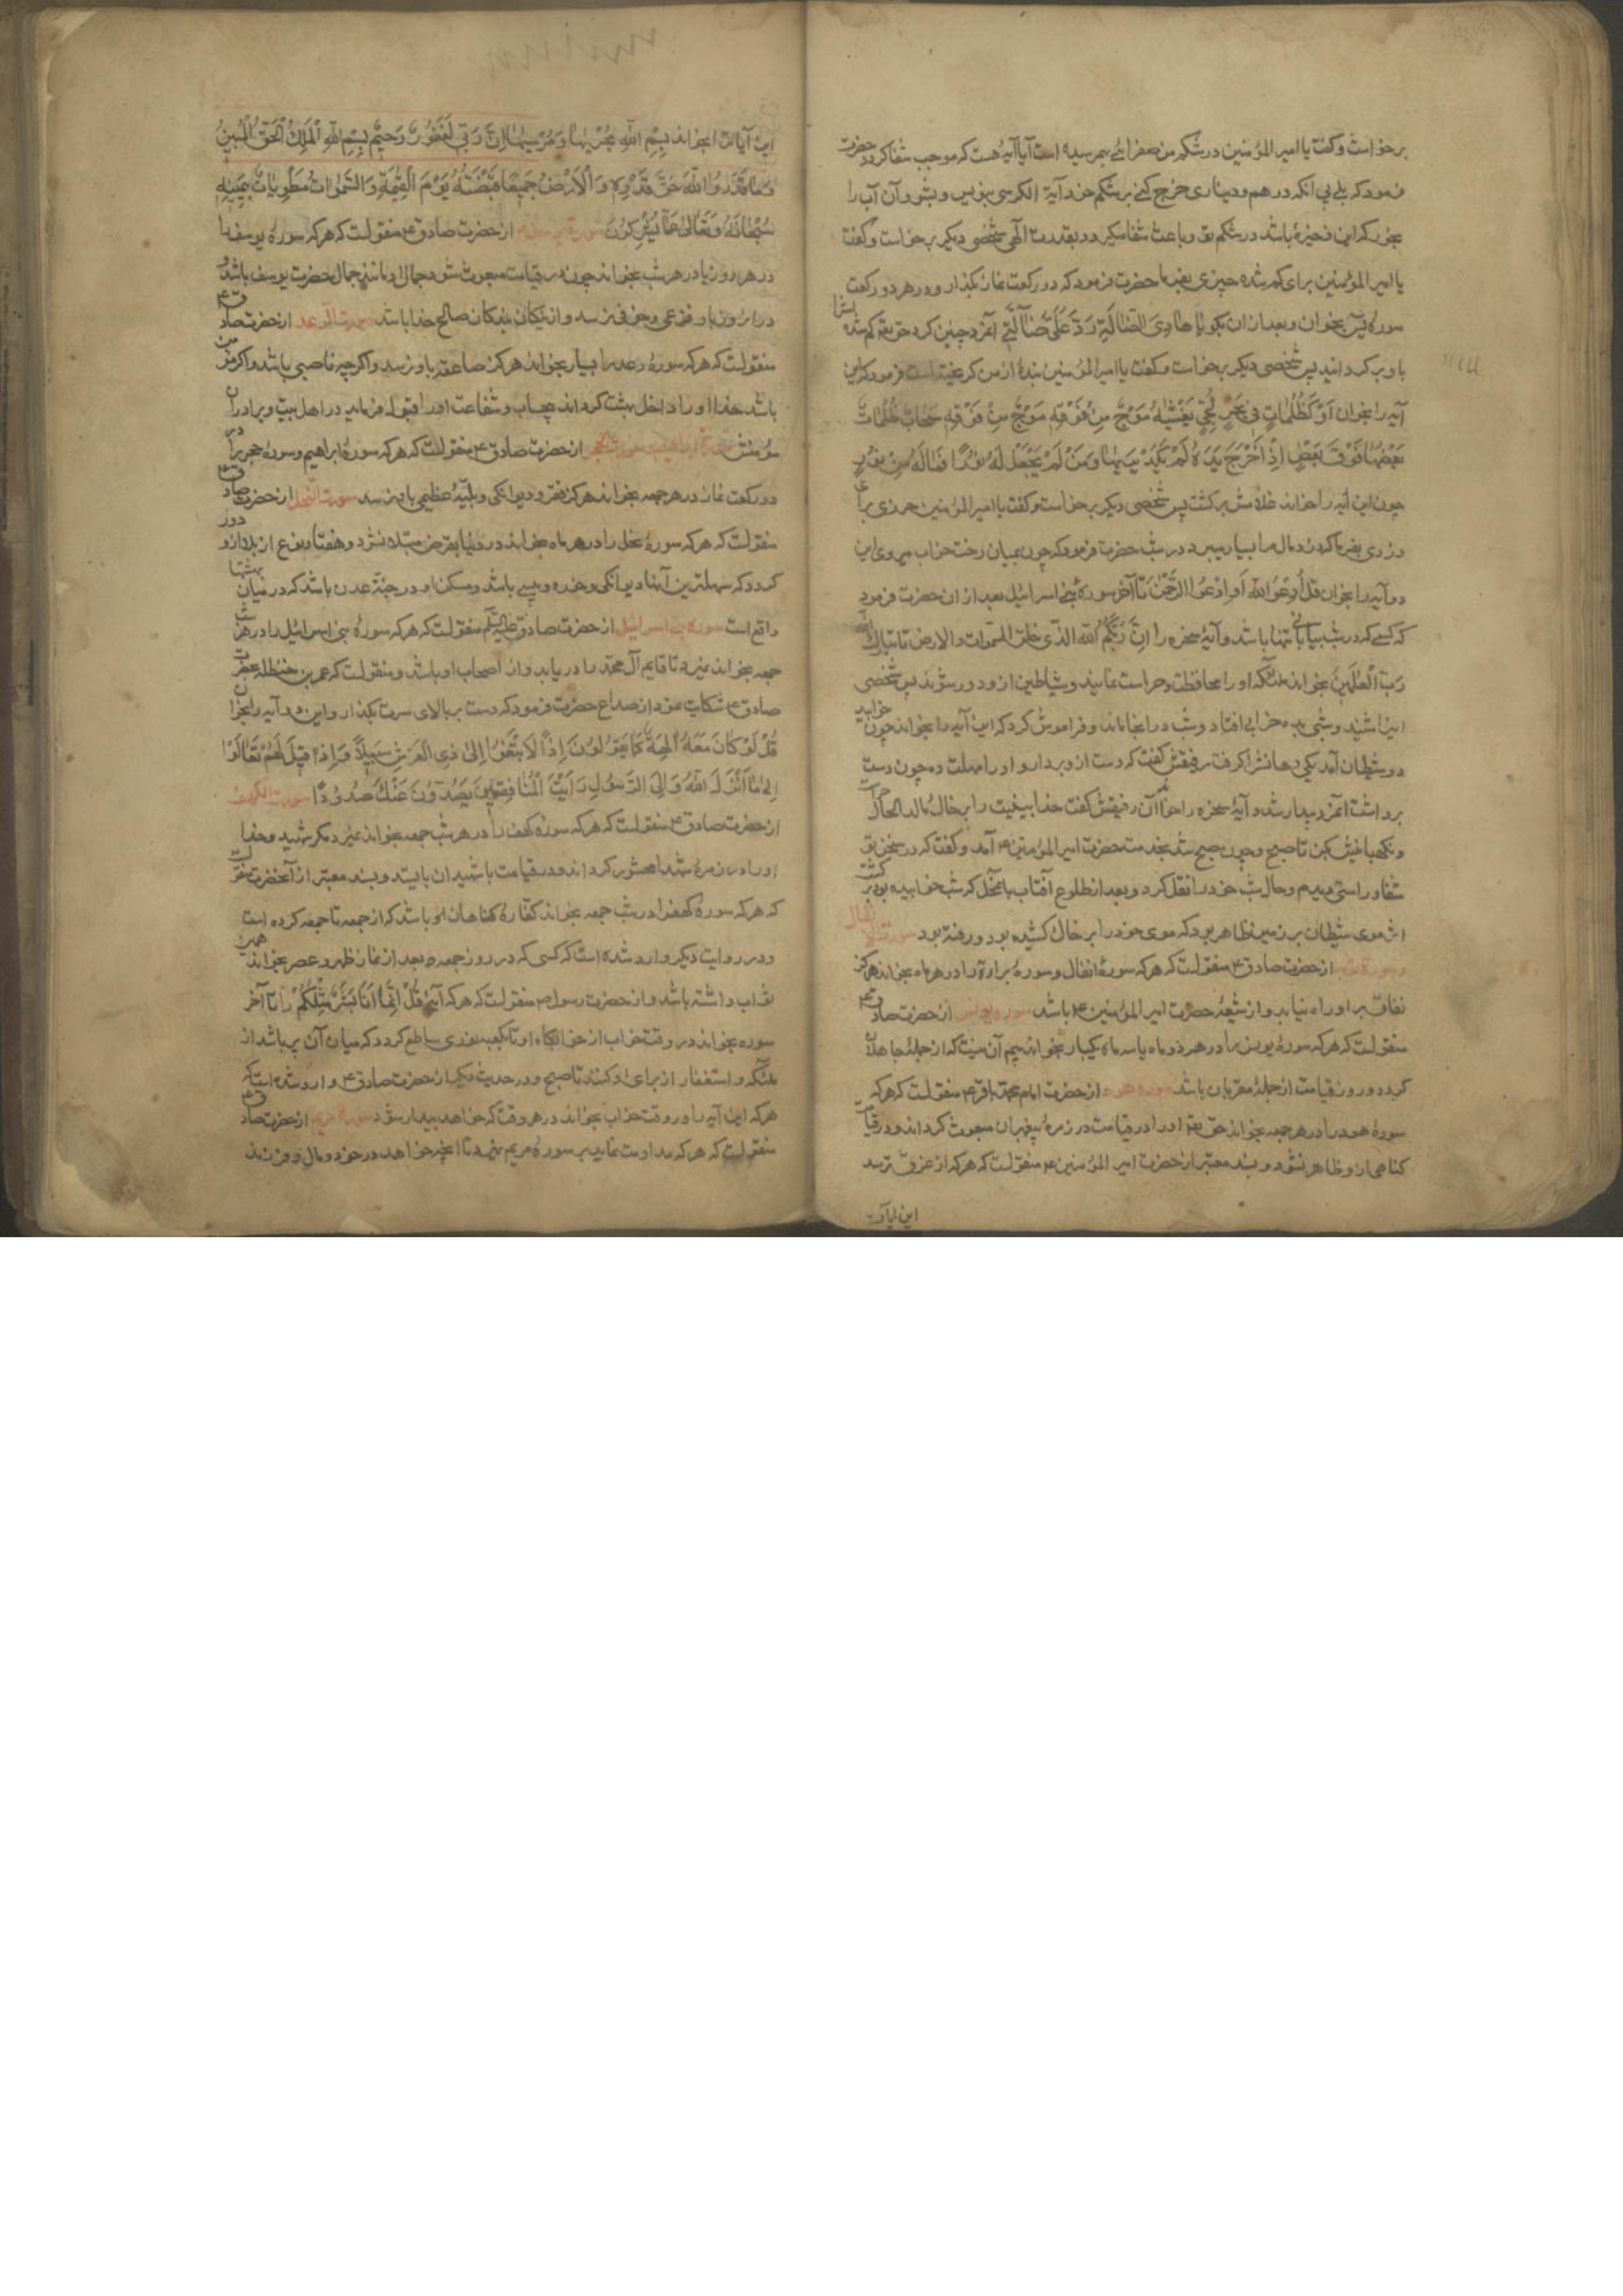 برخواست و کفت یا امیر المؤمنین در شکم من صفرائی بهمرسیده است آیا آیهٔ هست که موجب شفا کردد حضرت
فرمود که بلی بی انکه درهم و دیناری خرج کنی بر شکم خود آیة الکرسی بنویس و بشو و آن آب را
بخور که این ذخیرهٔ باشد در شکم تو و باعث شفا میکردد بقدرت الهی شخصی دیکر برخواست و کفت
یا امیر المؤمنین برای کم شده چیزی بفرما حضرت فرمود که دو رکعت نماز بکذار و در هر دو رکعت
سورهٔ یٓس بخوان و بعد از ان بکو یا هادِیَ الضّالَّةِ رُدَّ عَلَیَّ ضالَّتی آنمرد چنین کرد حق تعم کم شده اشرا
باو برکردانید پس شخصی دیکر برخواست و کفت یا امیر المؤمنین بندهٔ از من کریخته است فرمود که این
آیه را بخوان اَوْ کَظُلُماتٍ فی بَحْرٍ لُجِّیٍّ یَغْشٰیهُ مَوْجٌ مِنْ فَوْقِهِ مَوْجٌ مِنْ فَوْقِهِ سَحابٌ ظُلُماتٌ
بَعْضُها فَوْقَ بَعْضٍ اِذا اَخْرَجَ یَدَهُ لَمْ یَکَدْ یَریٰها وَمَنْ لَمْ یَجْعَلِ لَهُ نُورًا فَمالَهُ مِنْ نُورٍ
چون این آیه را خواند غلامش برکشت پس شخصی دیکر برخواست و کفت یا امیر المؤمنین حرزی برای
دزدی بفرما که دزد مال مرا بسیار میبرد در شب حضرت فرمود که چون بمیان رخت خواب میروی این
دو آیه را بخوان قُلِ ادْعُوا اللهَ اَوِ ادْعُوا الرَّحْمٰنَ تا آخر سورهٔ بنی اسرائیل بعد از ان حضرت فرمود
که کسی که در شب بیابانی تنها باشد و آیهٔ سخره را اِنَّ رَبَّکُمُ الله الذی خلق السموات والارض تا تبارک الله
رَبّ الْعٰلَمِینَ بخواند ملئکه او را محافظت و حراست نمایند و شیاطین از و دور شوند پس شخصی
اینرا شنید و شبی بده خرابی افتاد و شب در انجا ماند و فراموش کرد که این آیه را بخواند چون خوابید
دو شیطان آمد یکی دهانشرا کرفت رفیقش کفت که دست از و بردار و او را مهلت ده چون دست
برداشت آنمرد بیدار شد و آیهٔ سخره را خواند آن رفیقش کفت خدا بینیت را بر خاک مالد الحال حراست
و نکهبانیش بکن تا صبح و چون صبح شد بخدمت حضرت امیر المؤمنین ع آمد و کفت که در سخن تو
شفا و راستی دیدم و حال شب خود را نقل کرد و بعد از طلوع آفتاب بآنمحل که شب خوابیده بود برکشت
اثر موی شیطان بر زمین ظاهر بود که موی خود را بر خاک کشیده بود و رفته بود سورة الانفال
و سورهٔ توبه از حضرت صادق ع منقولست که هرکه سورهٔ انفال و سورهٔ براءة را در هر ماه بخواند هرکز
نفاق بر او راه نیابد و از شیعهٔ حضرت امیر المؤمنین ع باشد سوره یونس از حضرت صادق ع
منقولست که هرکه سورهٔ یونس را در هر دو ماه یا سه ماه یکبار بخواند بیم آن نیست که از جملهٔ جاهلان
کردد و روز قیامت از جملهٔ مقربان باشد سورهٔ هود از حضرت امام محمد باقر ع منقولست که هرکه
سورهٔ هود را در هر جمعه بخواند حق تعم او را در قیامت در زمرهٔ پیغمبران مبعوث کرداند و در قیامت
کناهی از و ظاهر نشود و بسند معتبر از حضرت امیر المؤمنین ع منقولست که هرکه از غرق ترسد
این ایات
این آیات را بخواند بِسْمِ اللهِ مَجْریٰها وَمُرْسٰیها اِنَّ رَبّی لَغَفُورٌ رَحیمٌ بِسْمِ اللهِ الْمَلِکِ الْحَقِّ الْمُبینِ
وَما قَدَرُوا اللهَ حَقَّ قَدْرِهِ وَالْاَرْضُ جَمیعًا قَبْضَتُهُ یَوْمَ الْقِیٰمَةِ وَالسَّمٰواتُ مَطْوِیّاتٌ بِیَمینِهِ
سُبْحانَهُ وَتَعالیٰ عَمّا یُشْرِکُونَ سورة یوسف از حضرت صادق ع منقولست که هرکه سورهٔ یوسف را
در هر روز یا در هر شب بخواند چون در قیامت مبعوث شود جمال او مانند جمال حضرت یوسف باشد و
در انروز باو فزعی و خوفی نرسد و از نیکان بندکان صالح خدا باشد سورت الرعد از حضرت صادق ع
منقولست که هرکه سورهٔ رعد را بسیار بخواند هرکز صاعقه باو نرسد و اکرچه ناصبی باشد و اکر مؤمن
باشد خدا او را داخل بهشت کرداند بیحساب و شفاعت او را قبول فرماید در اهل بیت و برادران
مؤمنش سورة ابراهیم سورت الحجر از حضرت صادق ع منقولست که هرکه سورهٔ ابراهیم و سورهٔ حجر را در
دو رکعت نماز در هر جمعه بخواند هرکز فقر و دیوانکی و بلیّهٔ عظیمی باو نرسد سورت النحل از حضرت صادق ع
منقولست که هرکه سورهٔ نحل را در هر ماه بخواند در دنیا بقرض مبتلا نشود و هفتاد نوع از بلا از و دور
کردد که سهلترین آنها دیوانکی و خوره و پیسی باشد و مسکن او در جنّة عدن باشد که در میان بهشتها
واقع است سوره بنی اسرائیل از حضرت صادق علیه السلم منقولست که هرکه سورهٔ بنی اسرائیل را در هر شب
جمعه بخواند نمیرد تا قایم آل محمّد را دریابد و از اصحاب او باشد و منقولست که عمر بن حنظله بحضرت
صادق ع شکایت نمود از صداع حضرت فرمود که دست بر بالای سرت بکذار و این دو آیه را بخوان
قُلْ لَوْ کانَ مَعَهُ آلِهَةٌ کَما یَقُولُونَ اِذًا لَابْتَغَوْا اِلیٰ ذِی الْعَرْشِ سَبیلًا وَاِذا قیلَ لَهُمْ تَعالَوْا
اِلیٰ ما اَنْزَلَ اللهُ وَاِلَی الرَّسُولِ رَاَیْتَ الْمُنافِقینَ یَصُدُّونَ عَنْکَ صُدُودًا سورت الکهف
از حضرت صادق ع منقولست که هرکه سورهٔ کهف را در هر شب جمعه بخواند نمیرد مکر شهید و خدا
او را در زمرهٔ شهدا محشور کرداند و در قیامت با شهیدان بایستد و بسند معتبر از آنحضرت منقولست
که هرکه سورهٔ کهف را در شب جمعه بخواند کفّارهٔ کناهان او باشد که از جمعه تا جمعه کرده است
و در روایت دیکر وارد شده است که کسی که در روز جمعه بعد از نماز ظهر و عصر بخواند همین
ثواب داشته باشد و از حضرت رسول ص منقولست که هرکه آیهٔ قُلْ اِنَّما اَنَا بَشَرٌ مِثْلُکُمْ را تا آخر
سوره بخواند در وقت خواب از خوابکاه او تا کعبه نوری ساطع کردد که میان آن پر باشد از
ملئکه و استغفار از برای او کنند تا صبح و در حدیث دیکر از حضرت صادق ع وارد شده است که
هرکه این آیه را در وقت خواب بخواند در هر وقت که خواهد بیدار شود سورهٔ مریم از حضرت صادق ع
منقولست که هرکه مداومت نماید بر سورهٔ مریم نمیرد تا انچه خواهد در خود و مال و فرزند